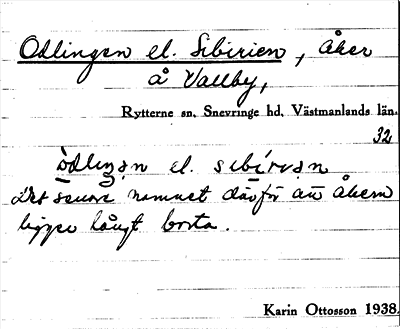 Odlingen el. Sibirien, åker
å Vallby,
Rytterne sn. Snevringe hd, Västmanlands län.
32
el. sibirən
Det senare namnet därför att åkern
ligger långt borta.
Karin Ottosson 1938.